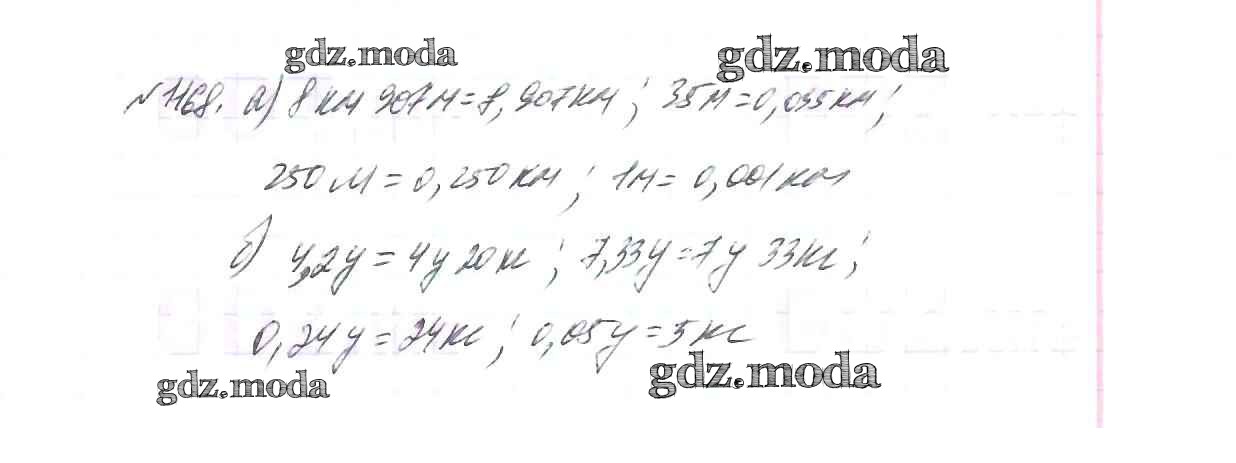 gdz.moda gdz.moda
№1168. а) 8 км 907 м = 8,907 км ; 35 м = 0,035 км ;
250 м = 0,250 км ; 1 м = 0,001 км
б) 4,2 ц = 4 ц 20 кг ; 7,33 ц = 7 ц 33 кг ;
0,24 ц = 24 кг ; 0,05 ц = 5 кг
gdz.moda gdz.moda